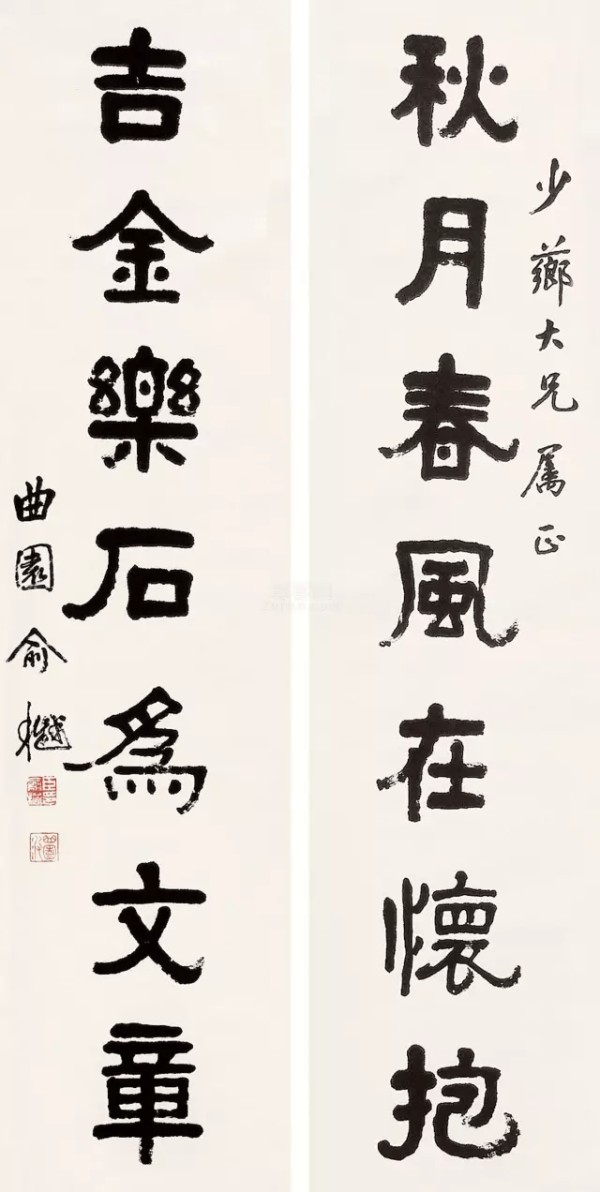 少薌大兄属正
秋月春風在懷抱
吉金樂石爲文章
曲園俞樾